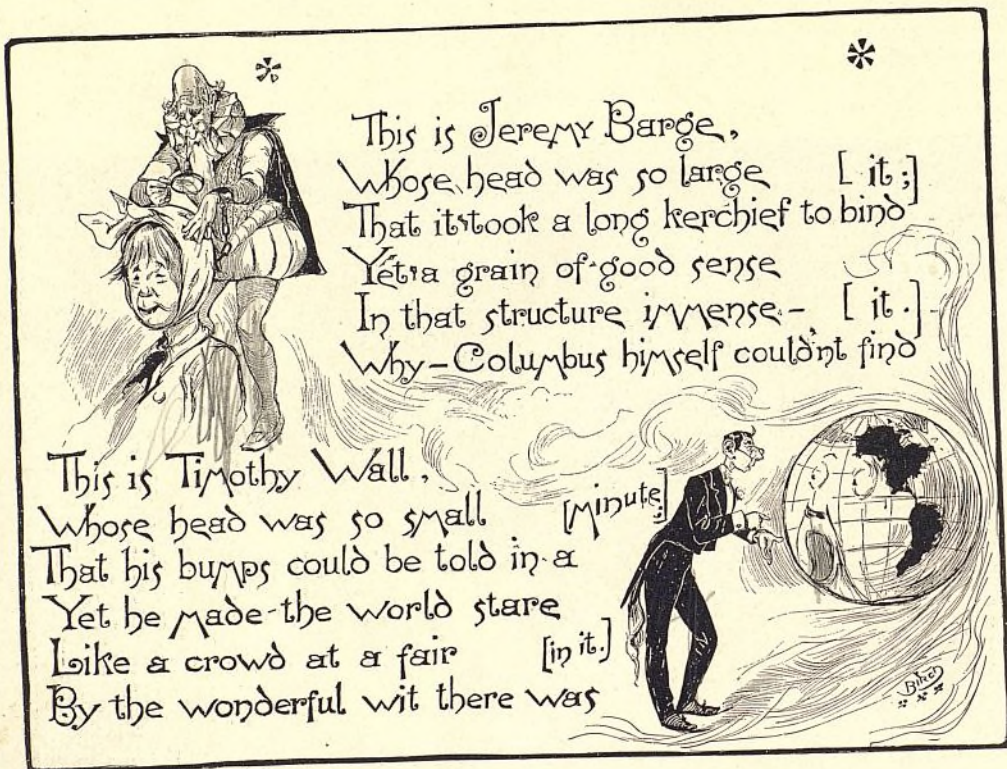 This is Jeremy Barge,
Whose head was so large [it;]
That it took a long kerchief to bind
Yet a grain of good sense
In that structure immense – [it.]
Why – Columbus himself could'nt find
This is Timothy Wall,
Whose head was so small [minute;]
That his bumps could be told in a
Yet he made the world stare
Like a crowd at a fair [in it.]
By the wonderful wit there was
Birch